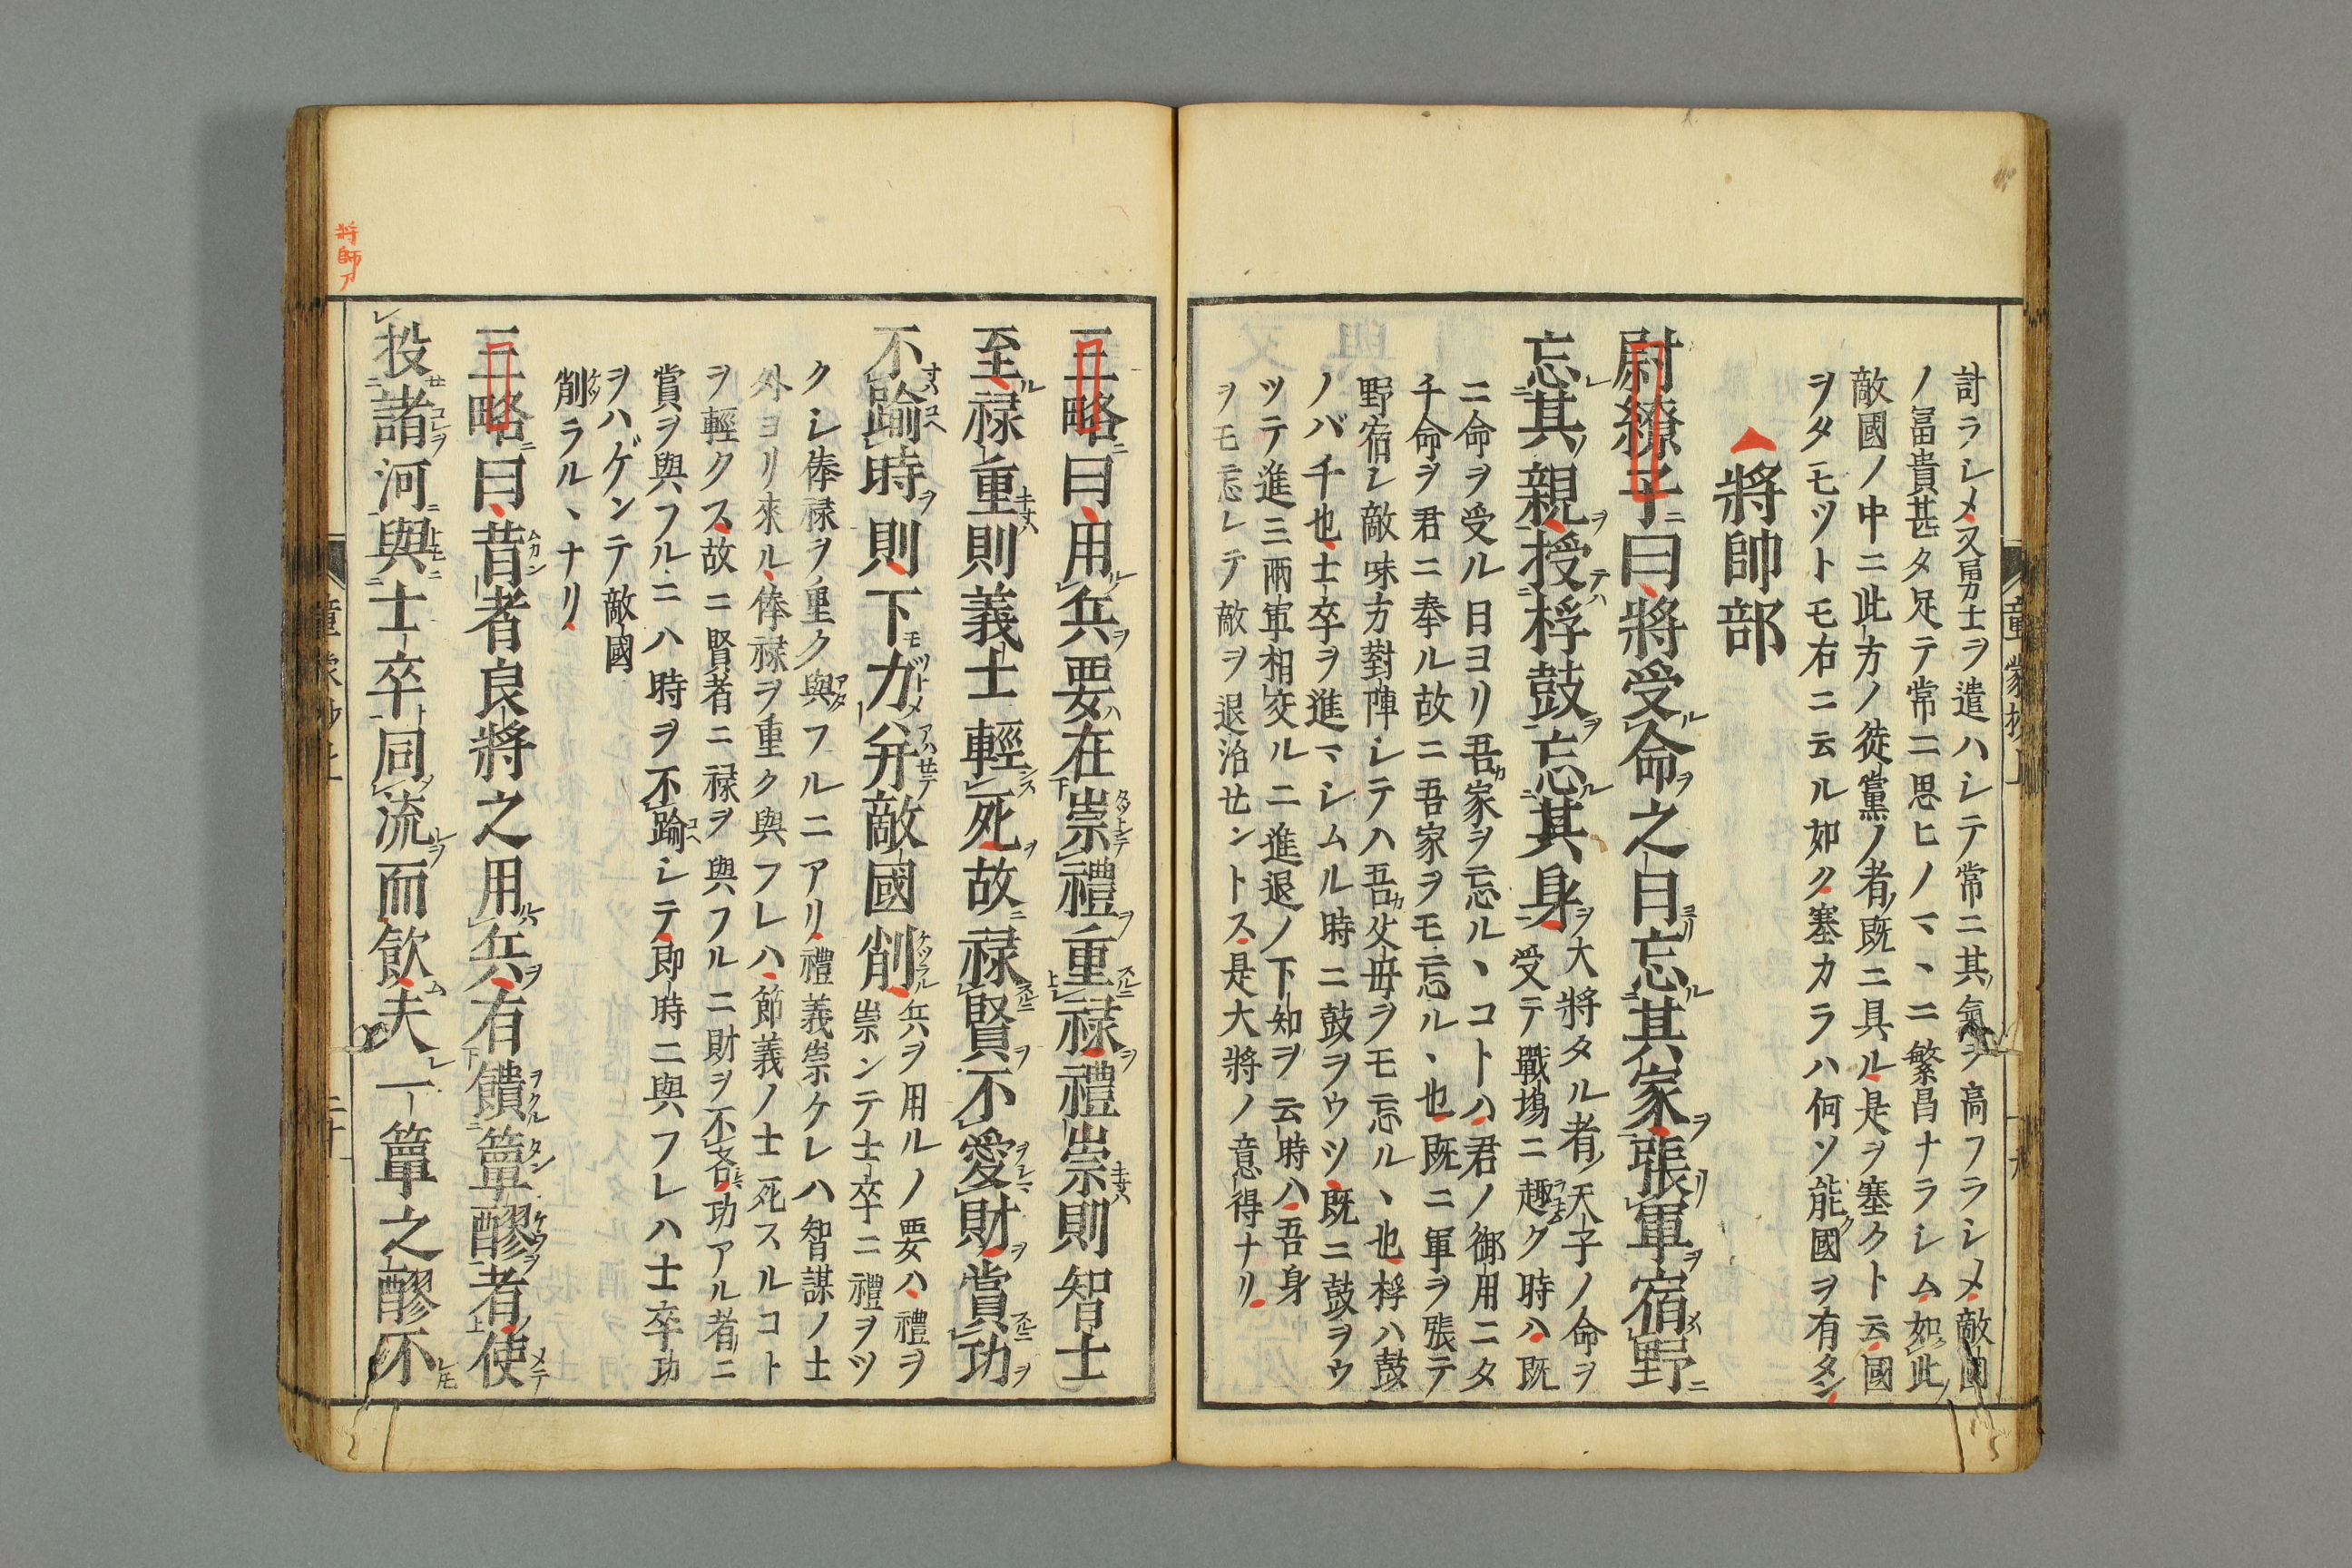 計ラレメ又男士ヲ遣ハシテ常ニ其氣ヲ高フラシメ敵國
ノ冨貴甚タ足テ常ニ思ヒノマヽニ繁昌ナラシム如此
敵國ノ中ニ此方ノ徒黨ノ者既ニ具ル是ヲ塞クト云國
ヲタモツトモ右ニ云ル如ク塞カラハ何ソ能國ヲ有タン
將帥部
尉繚子曰將受命之日忘其家張軍宿野
忘其親授桴鼓忘其身大將タル者天子ノ命ヲ
受テ戰塲ニ趣ク時ハ既
ニ命ヲ受ル日ヨリ吾家ヲ忘ルヽコトハ君ノ御用ニタ
千命ヲ君ニ奉ル故ニ吾家ヲモ忘ルヽ也既ニ軍ヲ張テ
野宿レ敵味方對陣レテハ吾父母ヲモ忘ルヽ也桴ハ鼓
ノバチ也士卒ヲ進マシムル時ニ鼓ヲウツ既ニ鼓ヲウ
ツテ進ミ兩軍相交ルニ進退ノ下知ヲ云時ハ吾身
ヲモ忘レテ敵ヲ退治セントス是大將ノ意得ナリ
童蒙抄上
十九
三略曰用兵要在崇禮重禄禮崇則智士
至禄重則義士輕死故禄賢不愛財賞功
不踰時則下力并敵國削兵ヲ用ルノ要ハ禮ヲ
崇ンテ士卒ニ禮ヲツ
クシ俸禄ヲ重ク與フルニアリ禮義崇ケレハ智謀ノ士
外ヨリ來ル俸禄ヲ重ク與フレハ節義ノ士死スルコト
ヲ輕クス故ニ賢者ニ禄ヲ與フルニ財ヲ不吝功アル者ニ
賞ヲ與フルニハ時ヲ不踰シテ即時ニ與フレハ士卒功
ヲハゲンテ敵國
削ラルヽナリ
三略曰昔者良將之用兵有饋簞醪者使
投諸河與士卒同流而飲夫一簞之醪不
童蒙抄上
二十
將師